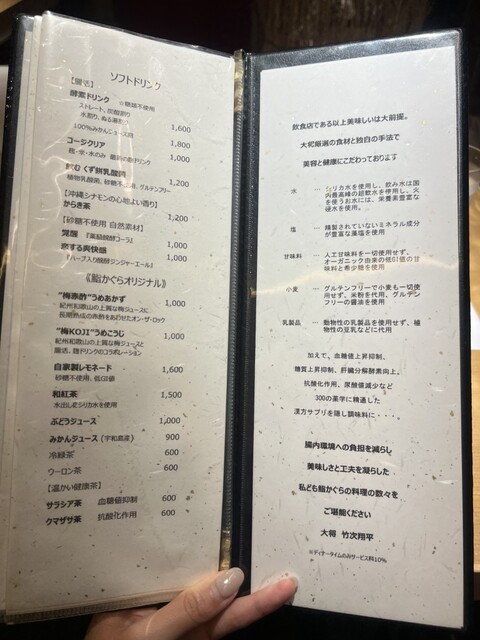 ソフトドリンク
【腸活】
酵素ドリンク ☆糖類不使用
ストレート、炭酸割り
水割り、ぬる湯割り 1,600
100%みかんジュース割 1,800
コージクリア 1,000
麹・米・水のみ
飲むくず餅乳酸菌 1,200
植物乳酸菌、砂糖不使用、グルテンフリー
【沖縄シナモンの心地よい香り】
からき茶 1,200
【砂糖不使用 自然素材】
覚醒 1,000
恋する爽快感 1,000
『ハーブ入り醗酵ジンジャーエール』
《鮨かぐらオリジナル》
“梅赤酢”うめあかず 1,000
紀州和歌山の上質な梅ジュースに
長期熟成の赤酢をあわせたオン・ザ・ロック
“梅KOJI”うめこうじ 1,000
紀州和歌山の上質な梅ジュースと
腸活、麹ドリンクのコラボレーション
自家製レモネード 1,600
砂糖不使用、低GI値
和紅茶 1,500
水出しでシリカ水を使用
ぶどうジュース 1,000
みかんジュース (宇和島産) 900
冷緑茶 600
ウーロン茶 600
【温かい健康茶】
サラシア茶 血糖値抑制 600
クマザサ茶 抗酸化作用 600
飲食店である以上美味しいは大前提。
大将厳選の食材と独自の手法で
美容と健康にこだわっております
水 … シリカ水を使用し、飲み水は国
内最高峰の超軟水を使用し、火
を使うお水には、栄養素豊富な
硬水を使用。
塩 … 精製されていないミネラル成分
が豊富な藻塩を使用
甘味料 … 人工甘味料を一切使用せず、
オーガニック由来の低GI値の甘
味料と希少糖を使用
小麦 … グルテンフリーで小麦も一切使
用せず、米粉を代用、グルテン
フリーの醤油を使用
乳製品 … 動物性の乳製品を使用せず、植
物性の豆乳などに代用
加えて、血糖値上昇抑制、
糖質上昇抑制、肝臓分解酵素向上、
抗酸化作用、尿酸値減少など
300の薬字に精通した
漢方サプリを隠し調味料に・・・。
腸内環境への負担を減らし
美味しさと工夫を凝らした
私ども鮨かぐらの料理の数々を
ご堪能ください
大将 竹次翔平
※ディナータイムのみサービス料10%